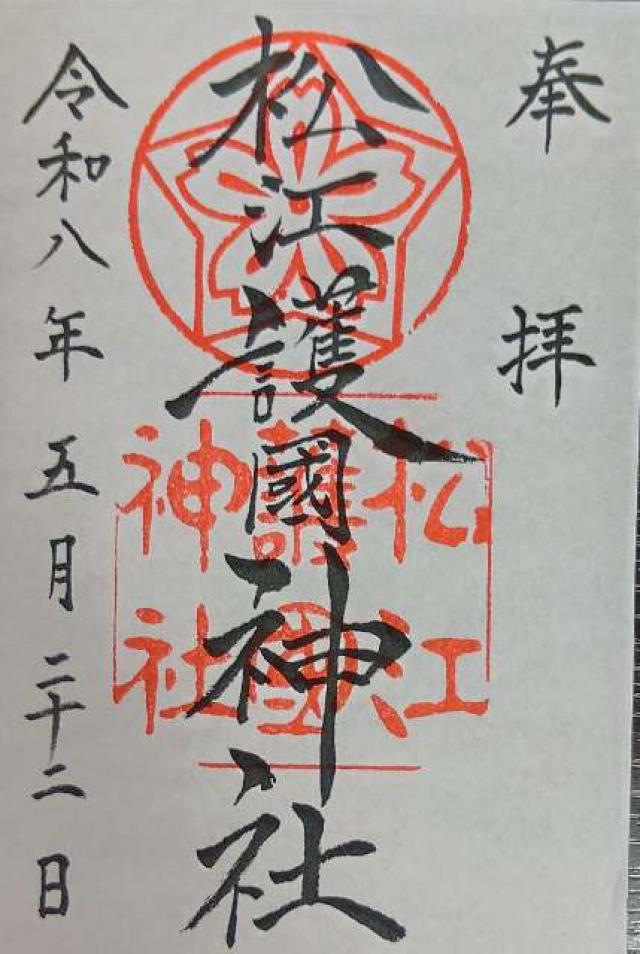 奉拝
松江護國神社
松江
護國
神社
令和八年五月二十二日